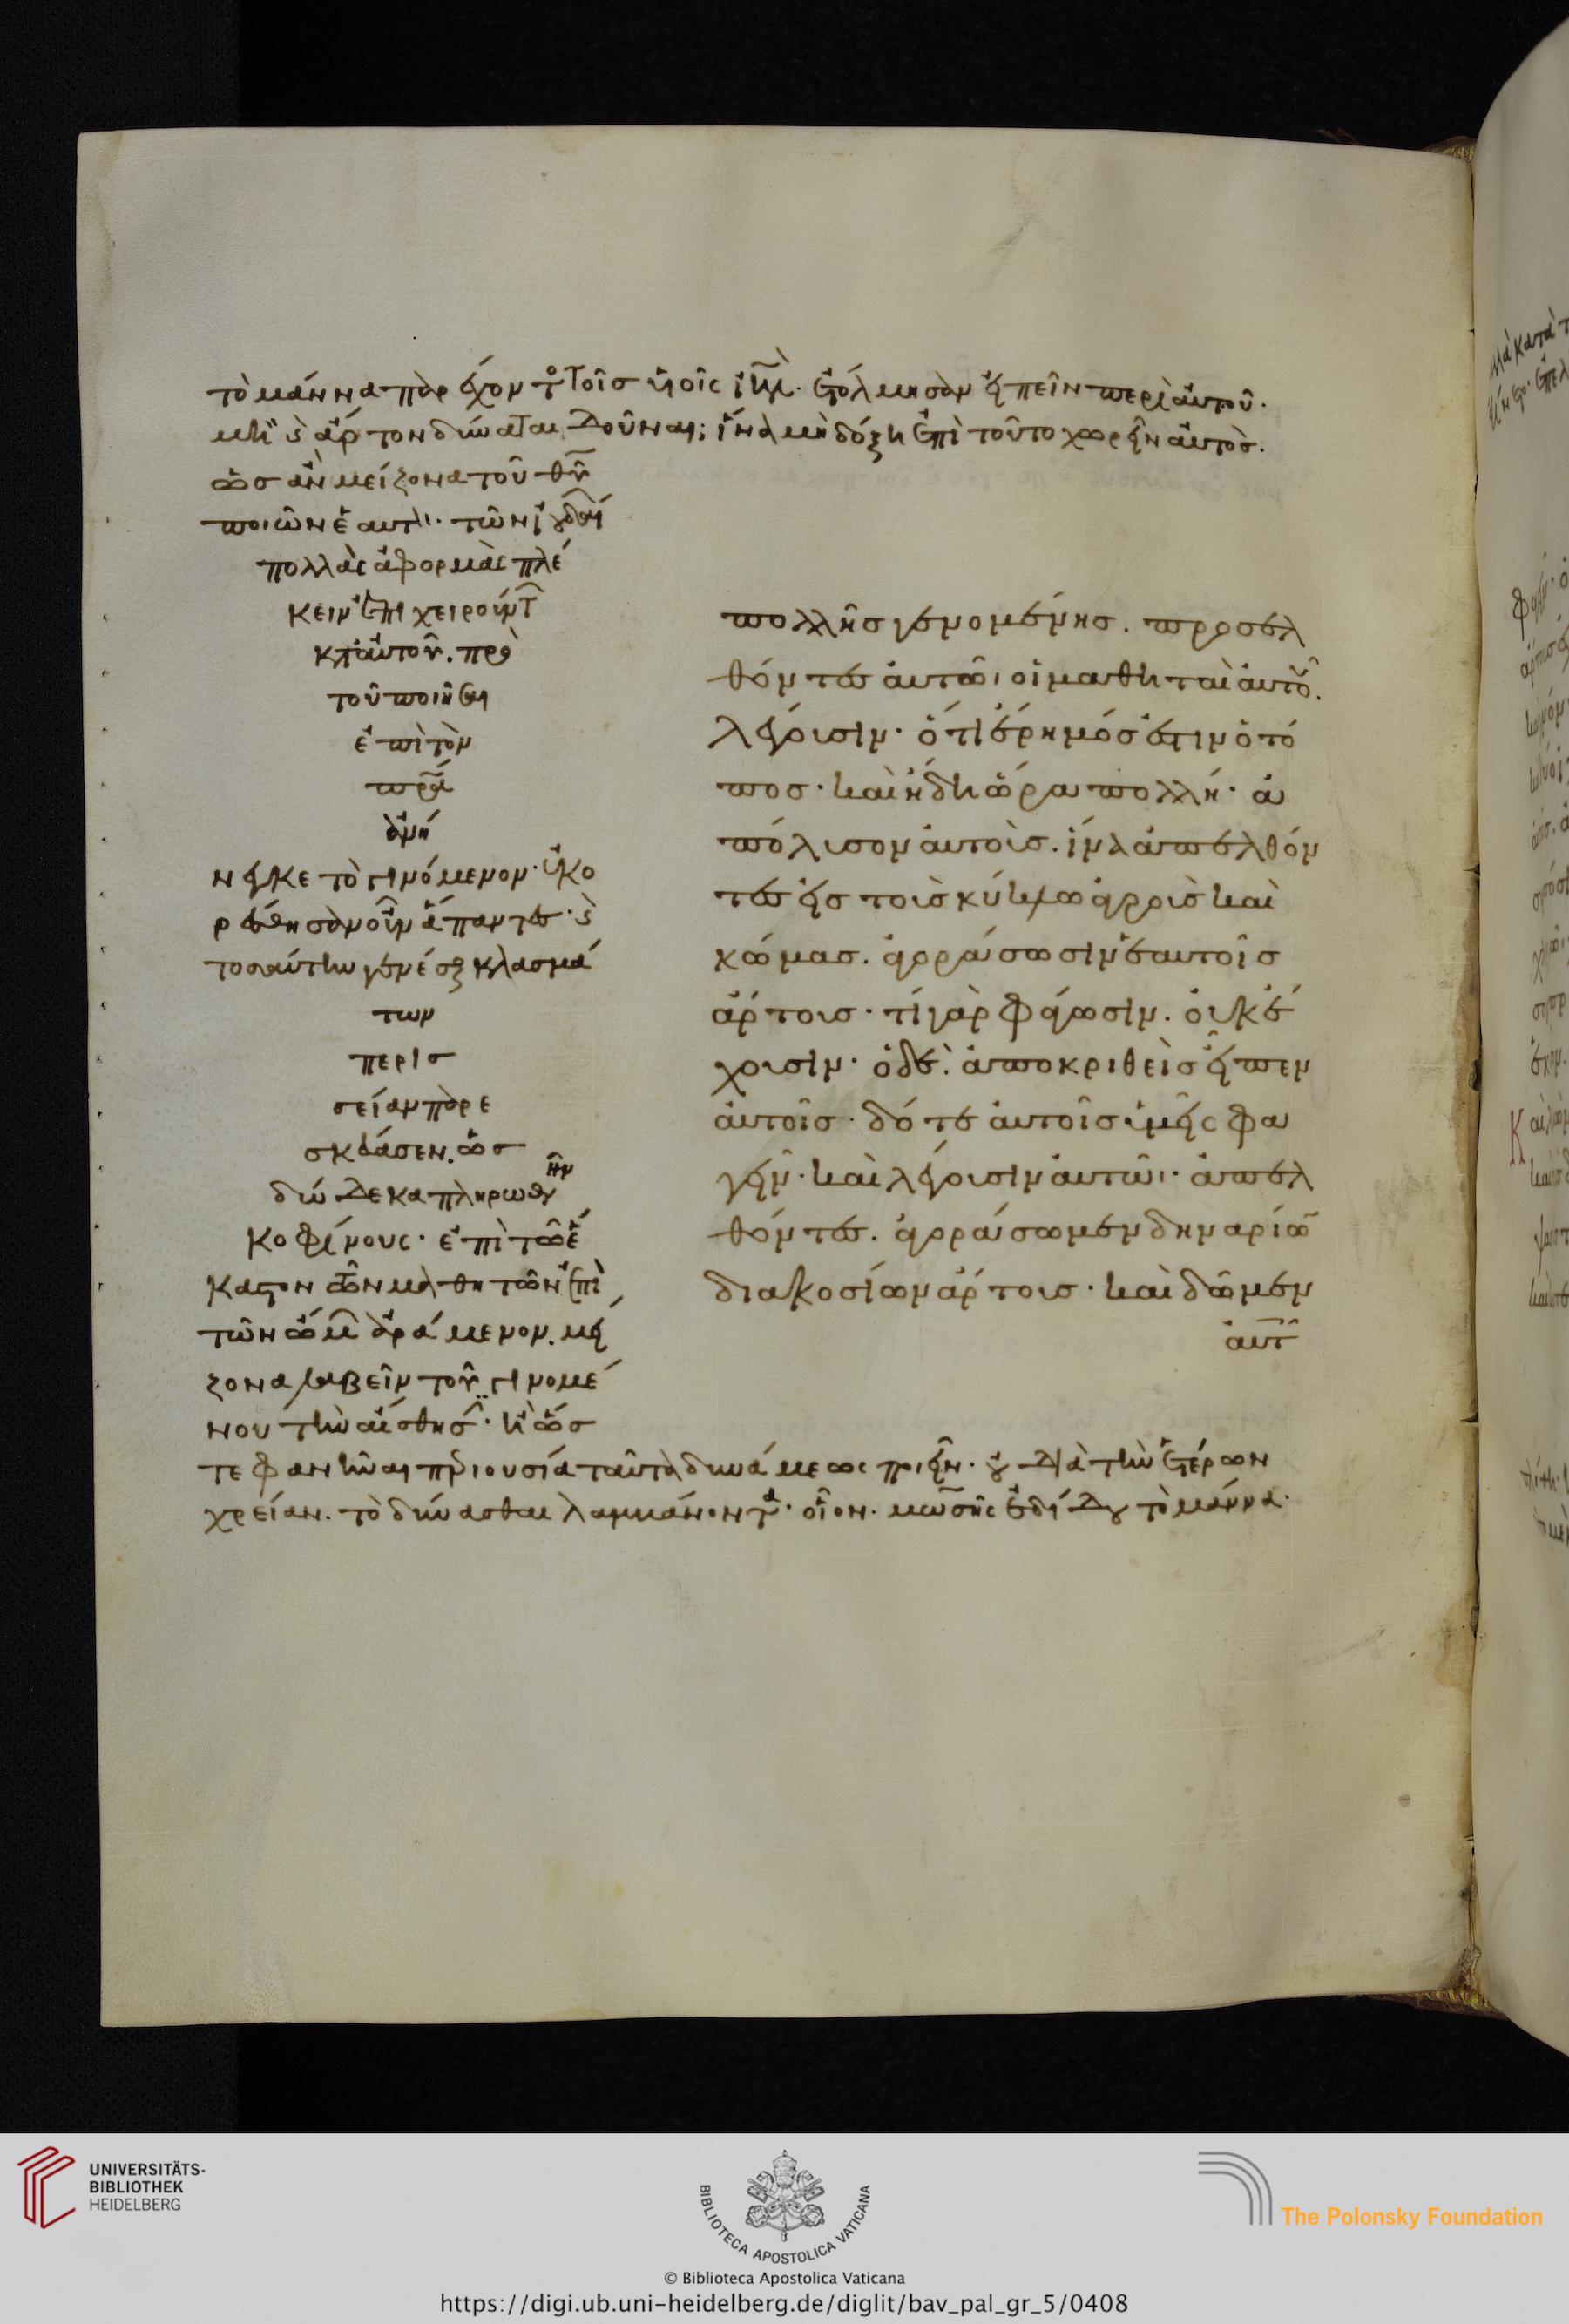 τὸ μάννα παρέχοντος τοῖς υἱοῖς ιηλ. ἐτόλμησαν εἰπεῖν περὶ αὐτοῦ.
μὴ καὶ ἄρτον δύναται δοῦναι; ἵνα μὴ δόξη ἐπὶ τοῦτο χωρεῖν αὐτὸς.
ὡς ἂν μείζονα τοῦ
ποιῶν τῶν
πολλὰς ἀφορμὰς πλέ
κειν ἐπιχειρούντ
κατ αὐτοῦ. πρὸ
τοῦ ποιῆσαι
ἐπὶ τὸν
πρα
ἀνή
νεγκε τὸ γινόμενον. ἐκο
ρέσθησαν ἅπαντες. καὶ
τοσαύτην γενέσθαι κλασμά
των
περισ
σείαν παρε
σκεύασεν. ὡς
δώδεκα πληρωθῆν
κοφίνους. ἐπὶ τῶ ἕ
καστον τῶν μαθητῶν ἐπὶ
τῶν ὤμων ἀράμενον. μεί
ζονα λαβεῖν τοῦ γινομέ
νου τὴν αἴσθησ. καὶ ὥσ
τε φανῆναι περιουσία ταῦτα δυνάμεως ποιεῖν. οὐ διὰ τὴν ἑτέρων
χρείαν. τὸ δύνασθαι λαμβάνοντα. οἷον. μωσῆς ἐδίδου τὸ μάννα.
πολλῆς γενομένης. προσελ
θόντες αὐτῶι οἱ μαθηταὶ αὐτοῦ.
λέγουσιν. ὅτι ἔρημός ἐστιν ὁ τό
πος. καὶ ἤδη ὥρα πολλή. ἀ
πόλυσον αὐτοὺς. ἵνα ἀπελθόν
τες εἰς τοὺς κύκλω ἀγροὺς καὶ
κώμας. ἀγοράσωσιν ἑαυτοῖς
ἄρτους. τί γὰρ φάγωσιν. οὐκ ἔ
χουσιν. ὁ δὲ. ἀποκριθεὶς εἶπεν
αὐτοῖς. δότε αὐτοῖς ὑμεῖς φα
γεῖν. καὶ λέγουσιν αὐτῶι. ἀπελ
θόντες. ἀγοράσωμεν δηναρίων
διακοσίων ἄρτους. καὶ δῶμεν
αὐτ
UNIVERSITÄTS-
BIBLIOTHEK
HEIDELBERG
BIBLIOTECA APOSTOLICA VATICANA
The Polonsky Foundation
© Biblioteca Apostolica Vaticana
https://digi.ub.uni-heidelberg.de/diglit/bav_pal_gr_5/0408